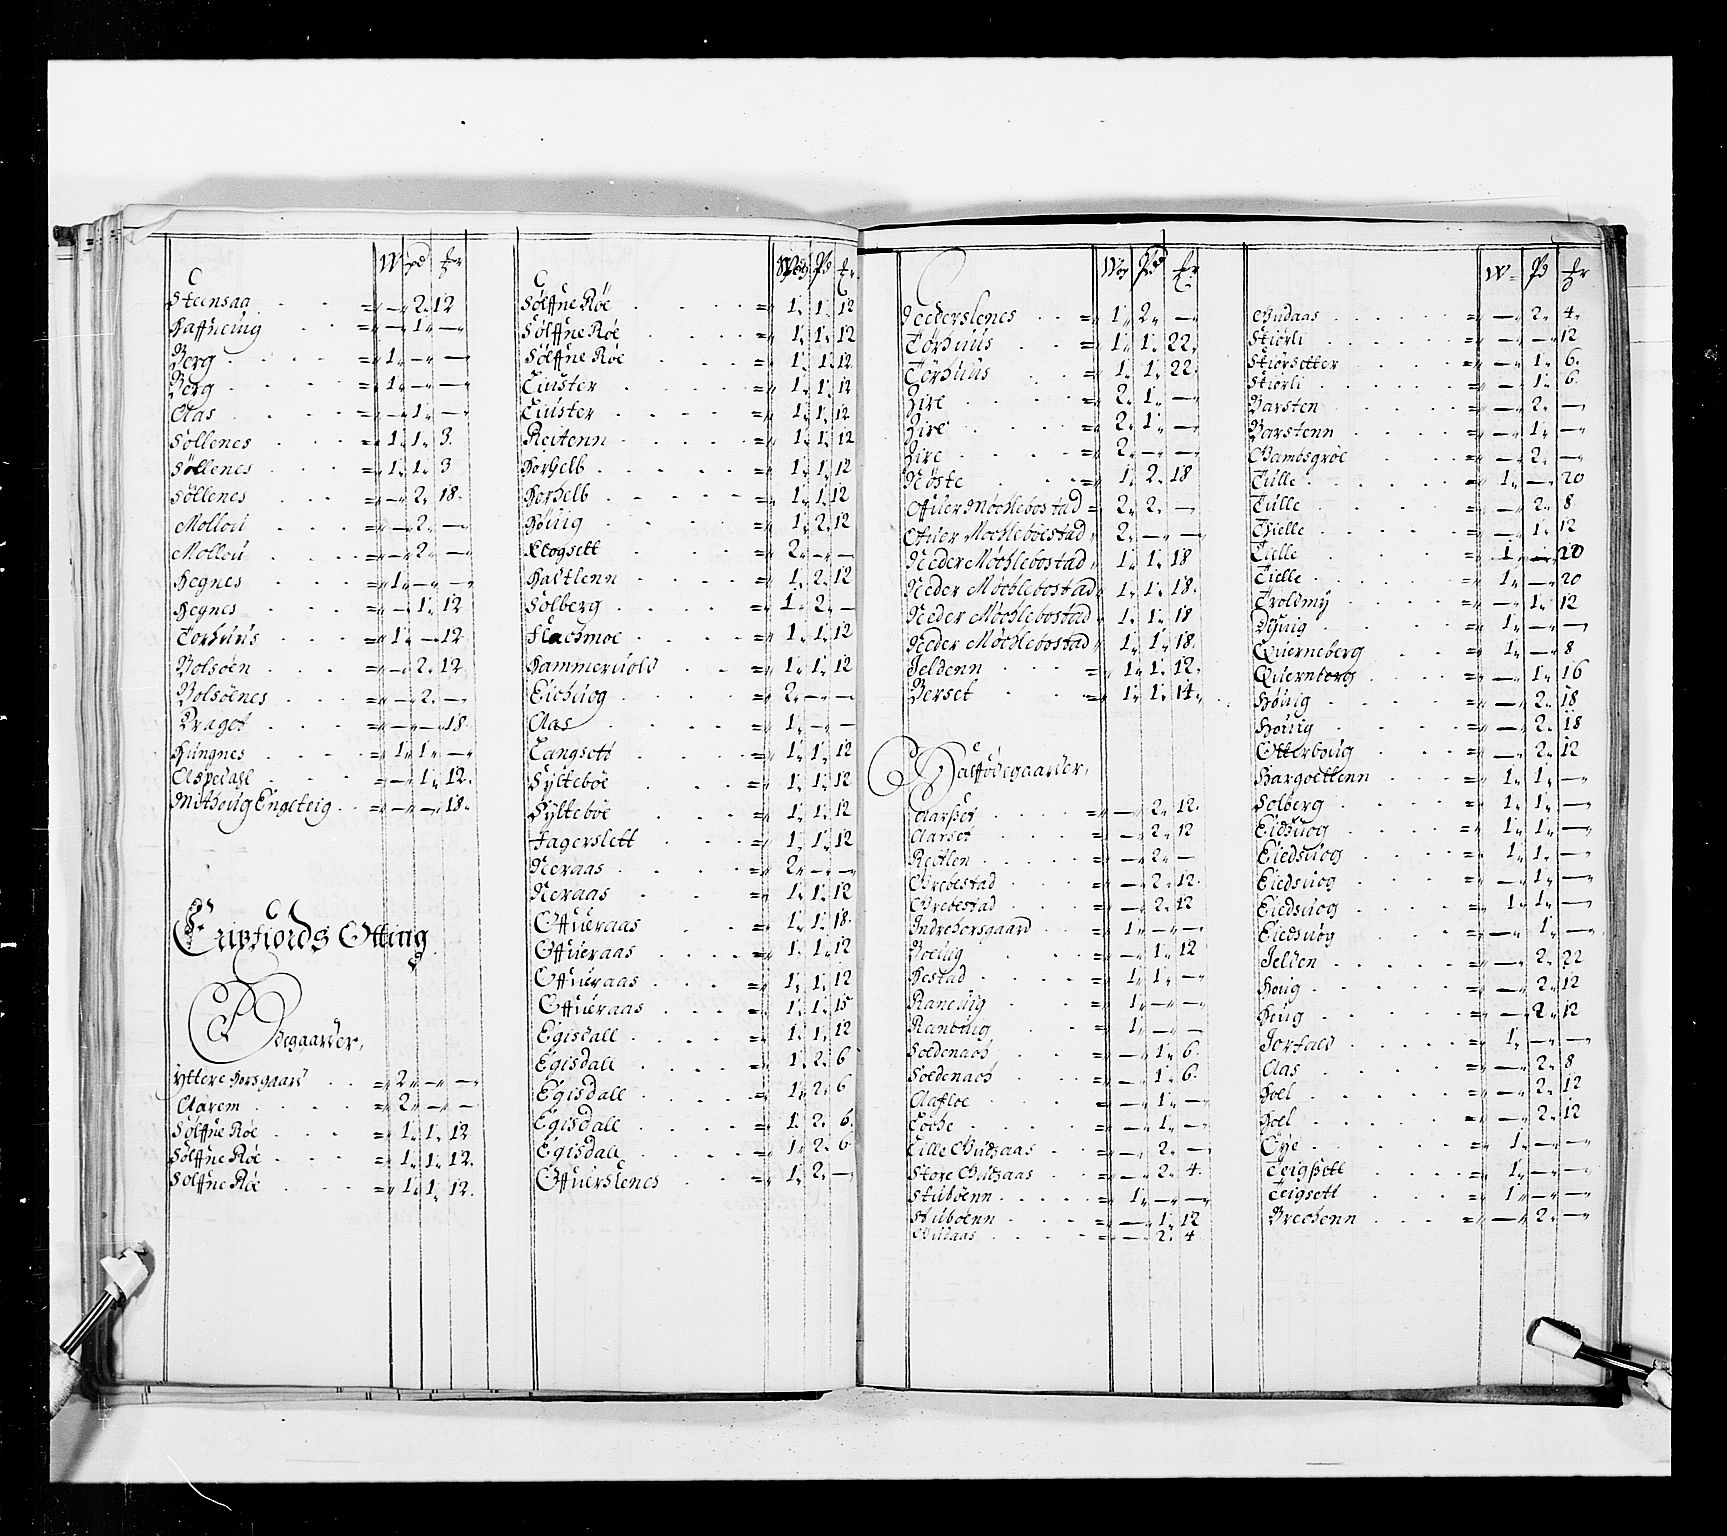 W pd
Steensaa = — 2 12
Haffneüng = — 1 —
Berg = 1 — —
Berg = 1 — —
Aas = — 1 —
Søllenes = 1 1 3
Søllenes = 1 1 3
Søllenes = — 2 18
Molloü = — 2 —
Molloü = — 2 —
Hegnes = 1 — —
Hegnes = — 1 12
Torhuüs = 1 — 12
Bolsøen = — 2 12
Bolsøenes = — 2 —
Dragot = — — 18
Hüngnes = 1 1 —
Aspedall = — 1 12
Midhoug Engeteig = — — 18
Eripfiords Otting
Ødegaarder
Yttere Horsgaard = 2 — —
Aarem = 2 — —
Sølffne Røe = 1 1 12
Sølffne Røe = 1 1 12
Sølffne Røe = 1 1 12
Wog Pd
Sølffne Røe = 1 1 12
Sølffne Røe = 1 1 12
Sølffne Røe = 1 1 12
Liüster = 1 1 12
Liüster = 1 1 12
Reitenn = 1 1 12
Horhelb = 1 1 12
Horhelb = 1 1 12
Høüig = 1 2 12
Klogsett = 2 — —
Hastlenn = 1 2 12
Solberg = 1 2 —
Flachmoe = 1 1 12
Hammeruold = 1 1 12
Eichuog = 2 — —
Aas = 1 — —
Langsett = 1 1 12
Syltebøe = 1 1 12
Syltebøe = 1 1 12
Fagerslett = 1 1 12
Neraas = 2 — —
Neraas = 1 1 12
Offüeraas = 1 1 18
Offüeraas = 1 1 12
Offüeraas = 1 1 12
Offüeraas = 1 1 15
Egisdall = 1 1 12
Egisdall = 1 2 6
Egisdall = 1 2 6
Egisdall = 1 2 6
Egisdall = 1 2 6
Offuerslenes = 1 2 —
Wog Pd
Nederslenes = 1 2 —
Torhüüs = 1 1 22
Torhüüs = 1 1 22
Hire = 2 1 —
Hire = 2 1 —
Hire = 2 — —
Nøste = 1 2 18
Offuer Møchlebostad = 2 2 —
Ofuer Møchleboestad 2 — —
Neder Møchlebostad 1 1 18
Neder Møchlebostad 1 1 18
Neder Møchlebostad 1 1 18
Neder Møchlebostad 1 1 18
Jeldenn = 1 1 12
Berset = 1 1 14
Halffødegaarder
Aarset = — 2 12
Aarset = — 2 12
Reitlen = — 2 —
Grebestad = — 2 12
Grebestad = — 2 12
Indrehorsgaard = 1 — —
Boeüig = — 1 12
Hestad = 1 1 —
Raneüig = 1 — —
Raneüig = 1 — —
Soldenach = — 1 6
Soldenach = — 1 6
Aafloe = — 1 —
Loche = — 1 —
Lille Gudsaas = — 2 —
Store Gudsaas = — 2 4
Stübøenn = 1 — —
Stübøenn = — 1 12
Gudaas = — 2 4
W Pd
Gudaas = — 2 4
Stiørli = — — 12
Stiørsetter = — 1 6
Stiørli = — 1 6
Barsten = — 2 —
Barstenn = — 1 —
Gamesgroe = — 2 —
Tülle = 1 — 20
Tülle = — 2 8
Tielle = — 1 12
Tielle = 1 — 20
Tielle = 1 — 20
Troldmÿ = — 1 12
Düüig = 1 — —
Querneberg = 1 — 8
Querneberg = — 1 16
Høüig = — 2 18
Høüig = — 2 18
Otterhoug = — 2 12
Hargoettenn = 1 1 —
Solberg = 1 1 —
Eidsuog = 1 1 —
Eiedsuog = 1 1 —
Eiedsuog = — 1 —
Eiedsuog = 1 1 —
Eiedsuog = — 1 —
Jelden = — 2 22
Houg = — 2 12
Houg = — 2 12
Jorfald = 1 — —
Aas = — 2 8
Hoel = — 2 12
Hoel = — 2 12
Øye = 1 — —
Teigsett = 1 — —
Teigsett = 1 — —
Brechenn = — 2 —